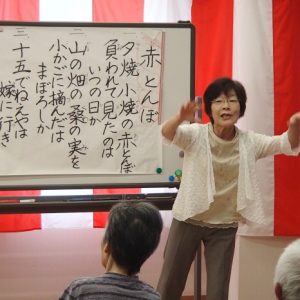 赤とんぼ
一、
夕焼小焼の赤とんぼ
負われて見たのは
いつの日か
二、
山の畑の桑の実を
小かごに摘んだは
まぼろしか
三、
十五でねえやは
嫁に行き